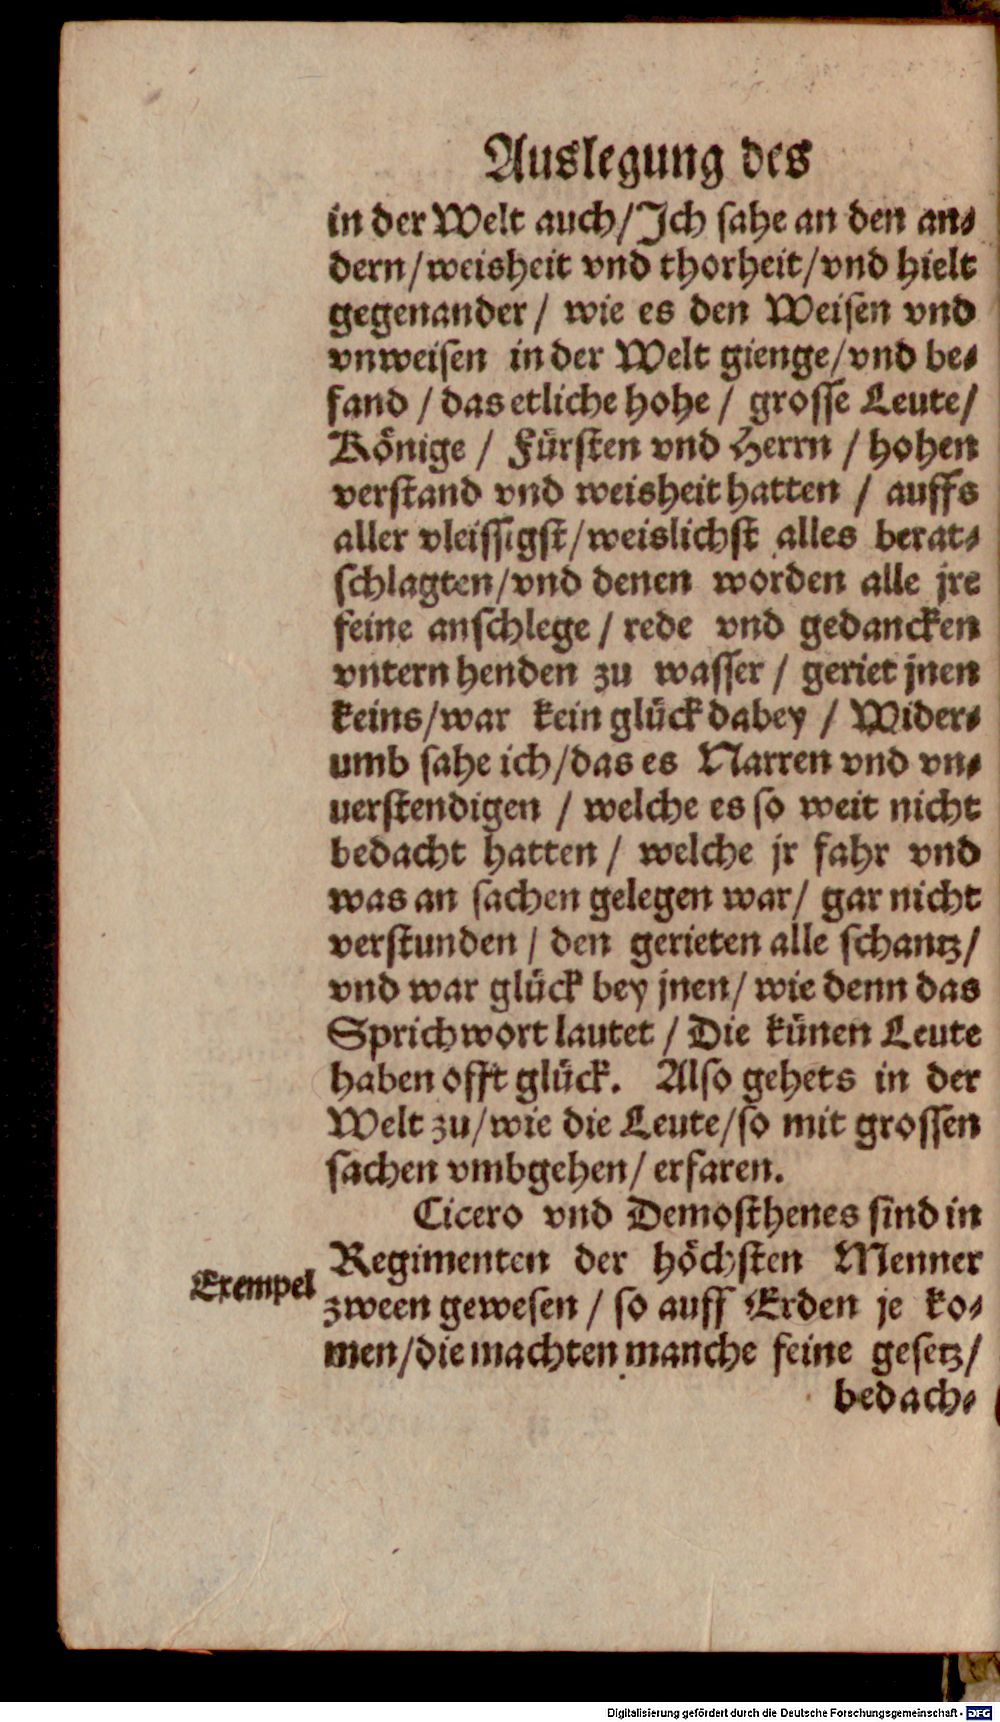 Auslegung des
in der Welt auch/Ich sahe an den an⸗
dern/weisheit vnd thorheit/vnd hielt
gegenander / wie es den Weisen vnd
vnweisen in der Welt gienge/vnd be⸗
fand / das etliche hohe / grosse Leute/
Könige / Fürsten vnd Herrn / hohen
verstand vnd weisheit hatten / auffs
aller vleissigst/weislichst alles berat⸗
schlagten/vnd denen worden alle jre
feine anschlege / rede vnd gedancken
vntern henden zu wasser / geriet jnen
keins/war kein glück dabey / Wider⸗
umb sahe ich/das es Narren vnd vn⸗
uerstendigen / welche es so weit nicht
bedacht hatten / welche jr fahr vnd
was an sachen gelegen war/ gar nicht
verstunden / den gerieten alle schantz/
vnd war glück bey jnen/ wie denn das
Sprichwort lautet / Die künen Leute
haben offt glück. Also gehets in der
Welt zu/wie die Leute/so mit grossen
sachen vmbgehen/ erfaren.
Cicero vnd Demosthenes sind in
Regimenten der höchsten Menner
Exempel
zween gewesen / so auff Erden je ko⸗
men/die machten manche feine gesetz/
bedach⸗
Digitalisierung gefördert durch die Deutsche Forschungsgemeinschaft - DFG